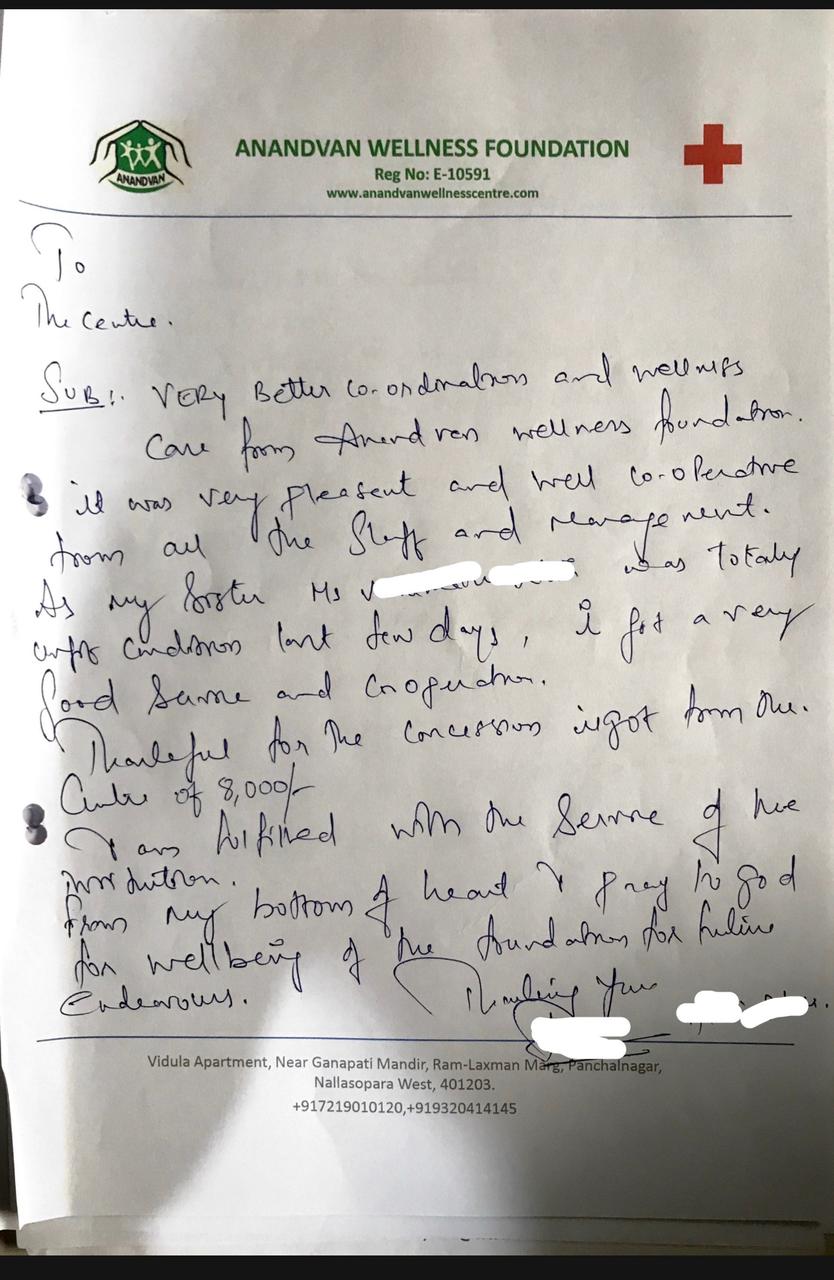 ANANDVAN
ANANDVAN WELLNESS FOUNDATION
Reg No: E-10591
www.anandvanwellnesscentre.com
To
The Centre.
SUB:. VERY Better co-ordination and wellness
Care from Anandvan wellness foundation.
it was very pleasent and well co-operative
from all the Staff and management.
As my Sister Ms was totaly
unfit condition last few days, i got a very
good Service and Cooperation.
Thankful for the concession i got from the.
Centre of 8,000/-
I am fulfilled with the Service of the
institution.
From my bottom of heart I pray to god
for wellbeing of the foundation for future
Endeavours.
Thanking You
Vidula Apartment, Near Ganapati Mandir, Ram-Laxman Marg, Panchalnagar,
Nallasopara West, 401203.
+917219010120,+919320414145